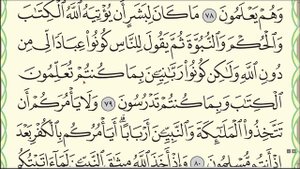 وَهُمْ يَعْلَمُونَ ٧٨ مَا كَانَ لِبَشَرٍ أَن يُؤْتِيَهُ ٱللَّهُ ٱلْكِتَٰبَ
وَٱلْحُكْمَ وَٱلنُّبُوَّةَ ثُمَّ يَقُولَ لِلنَّاسِ كُونُوا۟ عِبَادًا لِّى مِن
دُونِ ٱللَّهِ وَلَٰكِن كُونُوا۟ رَبَّٰنِيِّۦنَ بِمَا كُنتُمْ تُعَلِّمُونَ
ٱلْكِتَٰبَ وَبِمَا كُنتُمْ تَدْرُسُونَ ٧٩ وَلَا يَأْمُرَكُمْ أَن
تَتَّخِذُوا۟ ٱلْمَلَٰٓئِكَةَ وَٱلنَّبِيِّۦنَ أَرْبَابًا أَيَأْمُرُكُم بِٱلْكُفْرِ بَعْدَ
إِذْ أَنتُم مُّسْلِمُونَ ٨٠ وَإِذْ أَخَذَ ٱللَّهُ مِيثَٰقَ ٱلنَّبِيِّۦنَ لَمَآ ءَاتَيْتُكُم